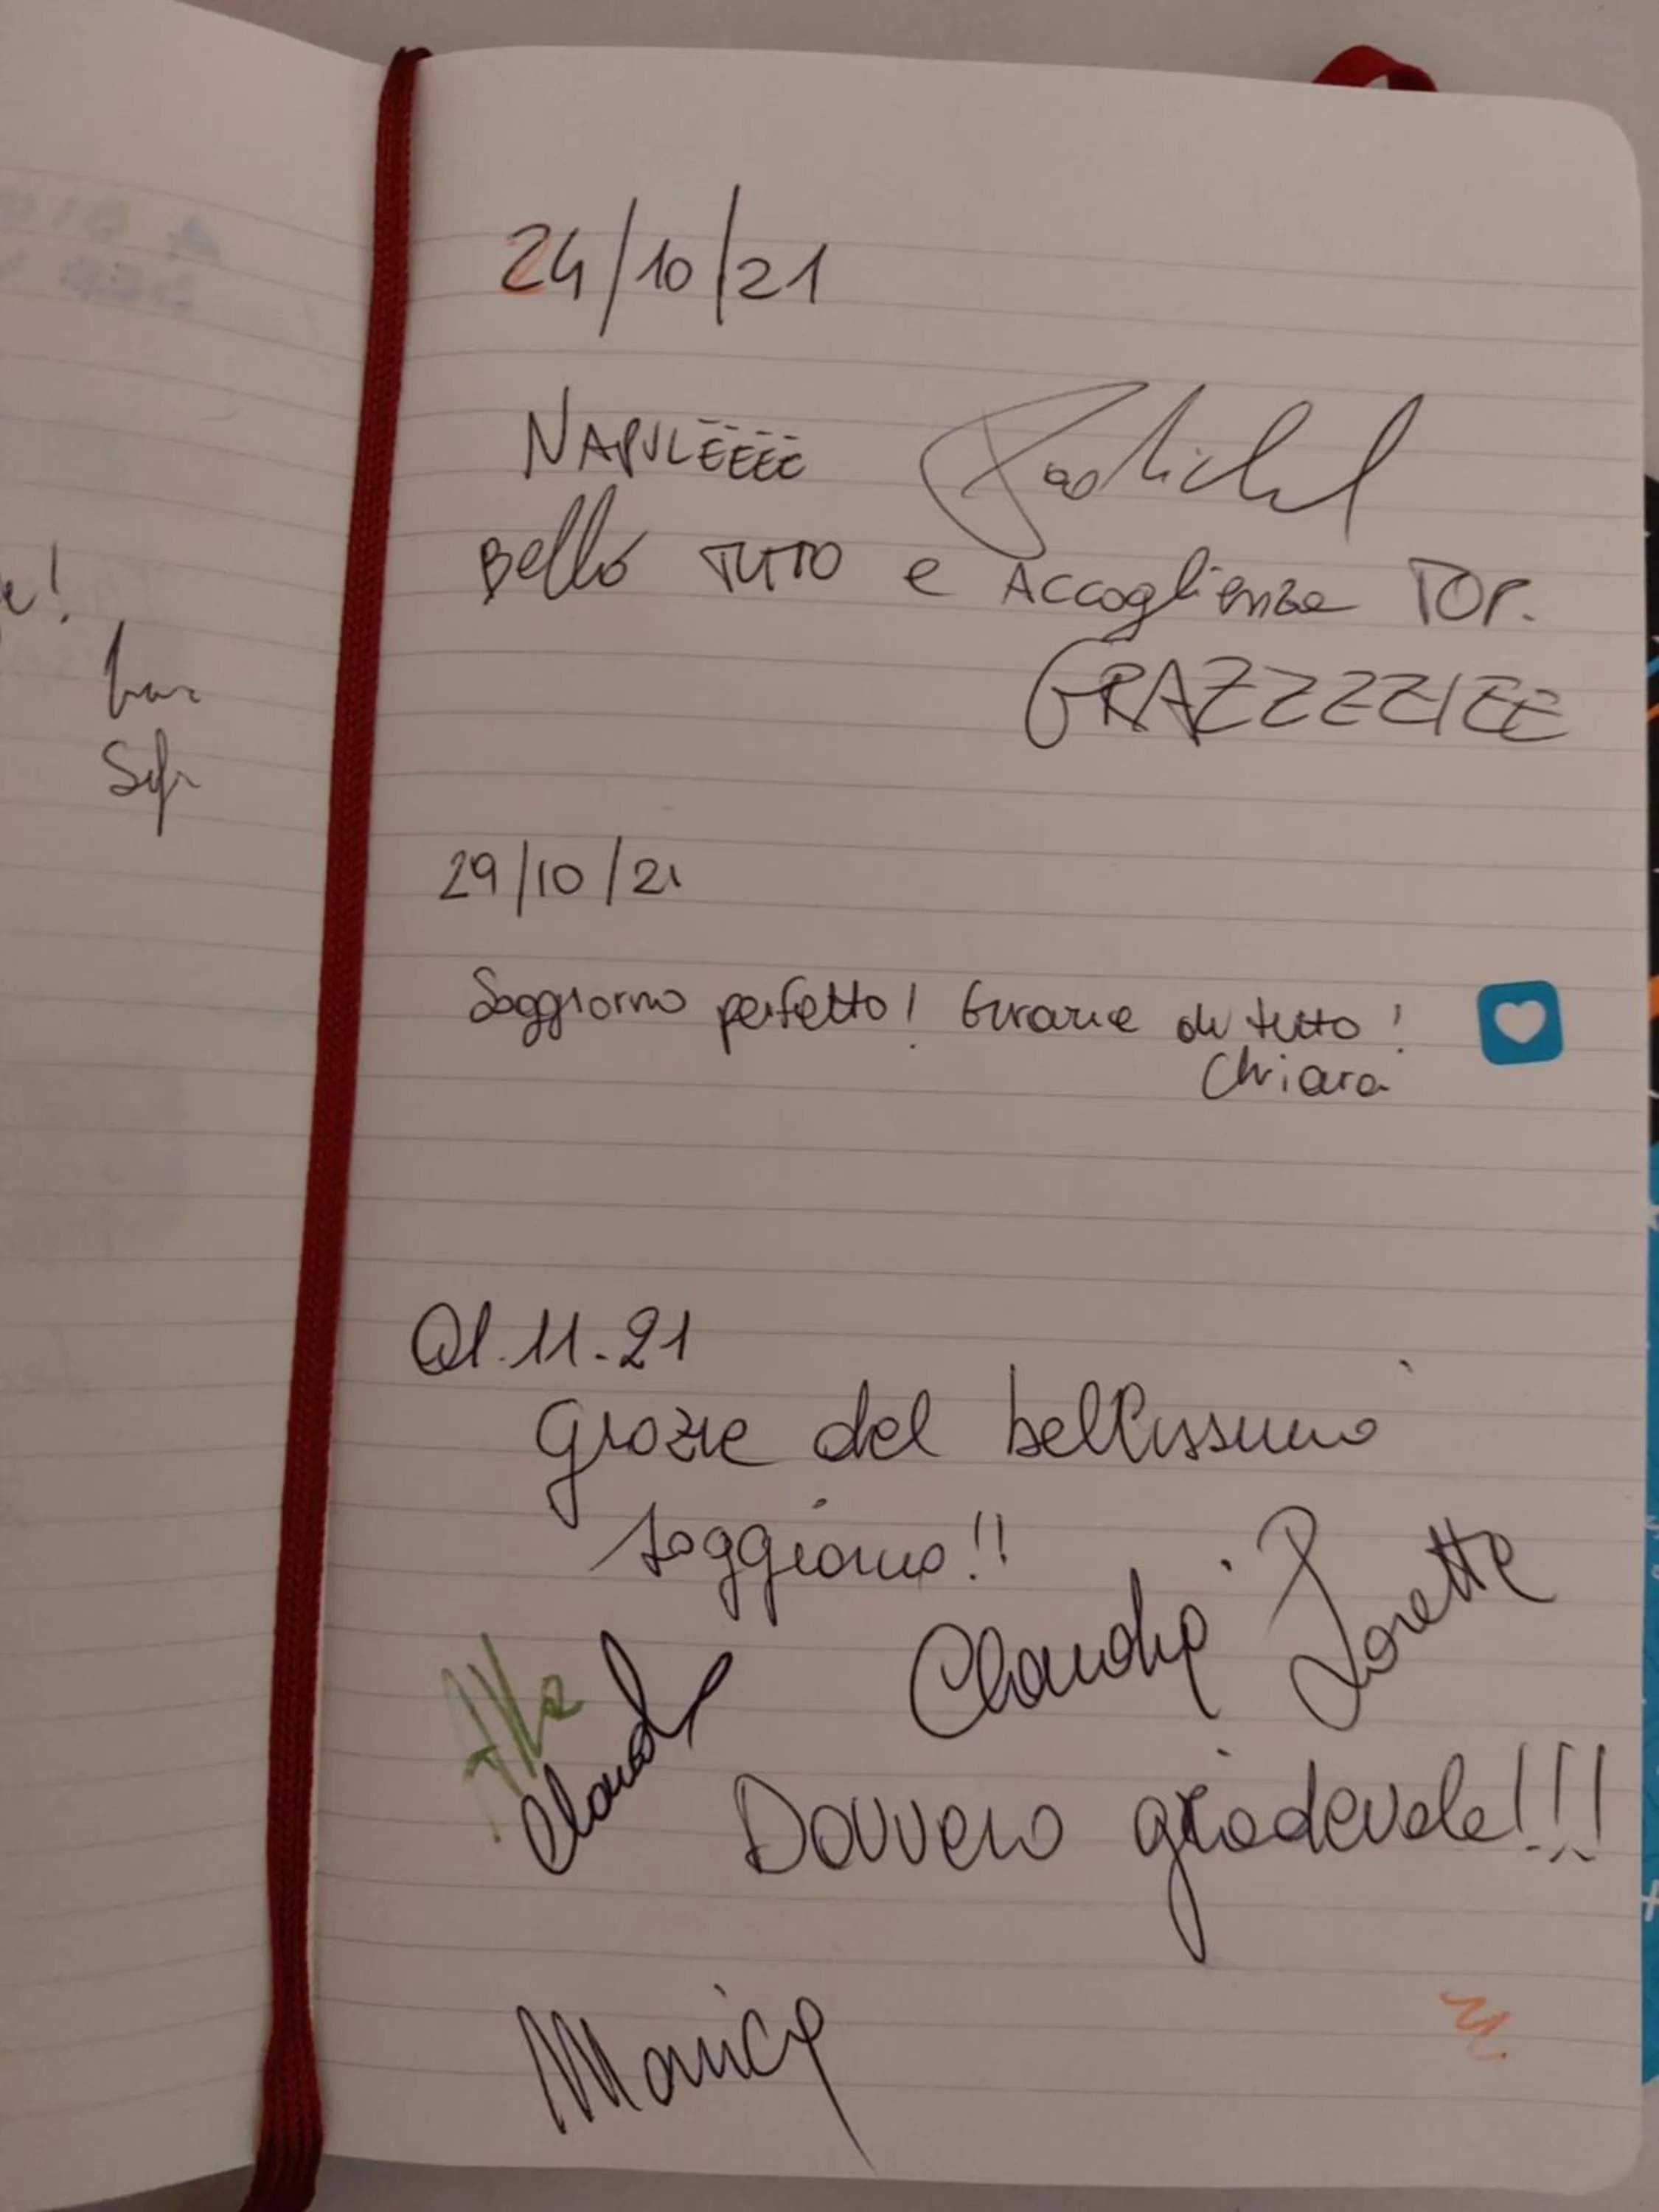 24/10/21
NAPULEEEE
Bello TUTTO e Accoglienza TOP.
GRAZZZZIEE
29/10/21
Soggiorno perfetto! Grazie di tutto!
Chiara
01.11.21
Grazie del bellissimo
soggiorno!!
Claudia Loretta
Davvero gradevole!!!
Monica